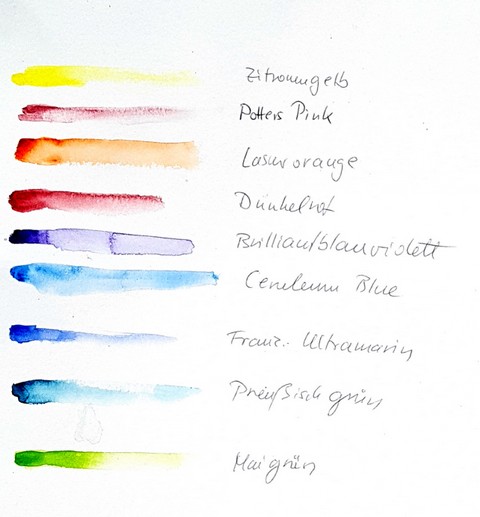 Zitronengelb
Potters Pink
Lasurorange
Dunkelrot
Brillantblauviolett
Ceruleum Blue
Franz.- Ultramarin
Preußisch grün
Maigrün